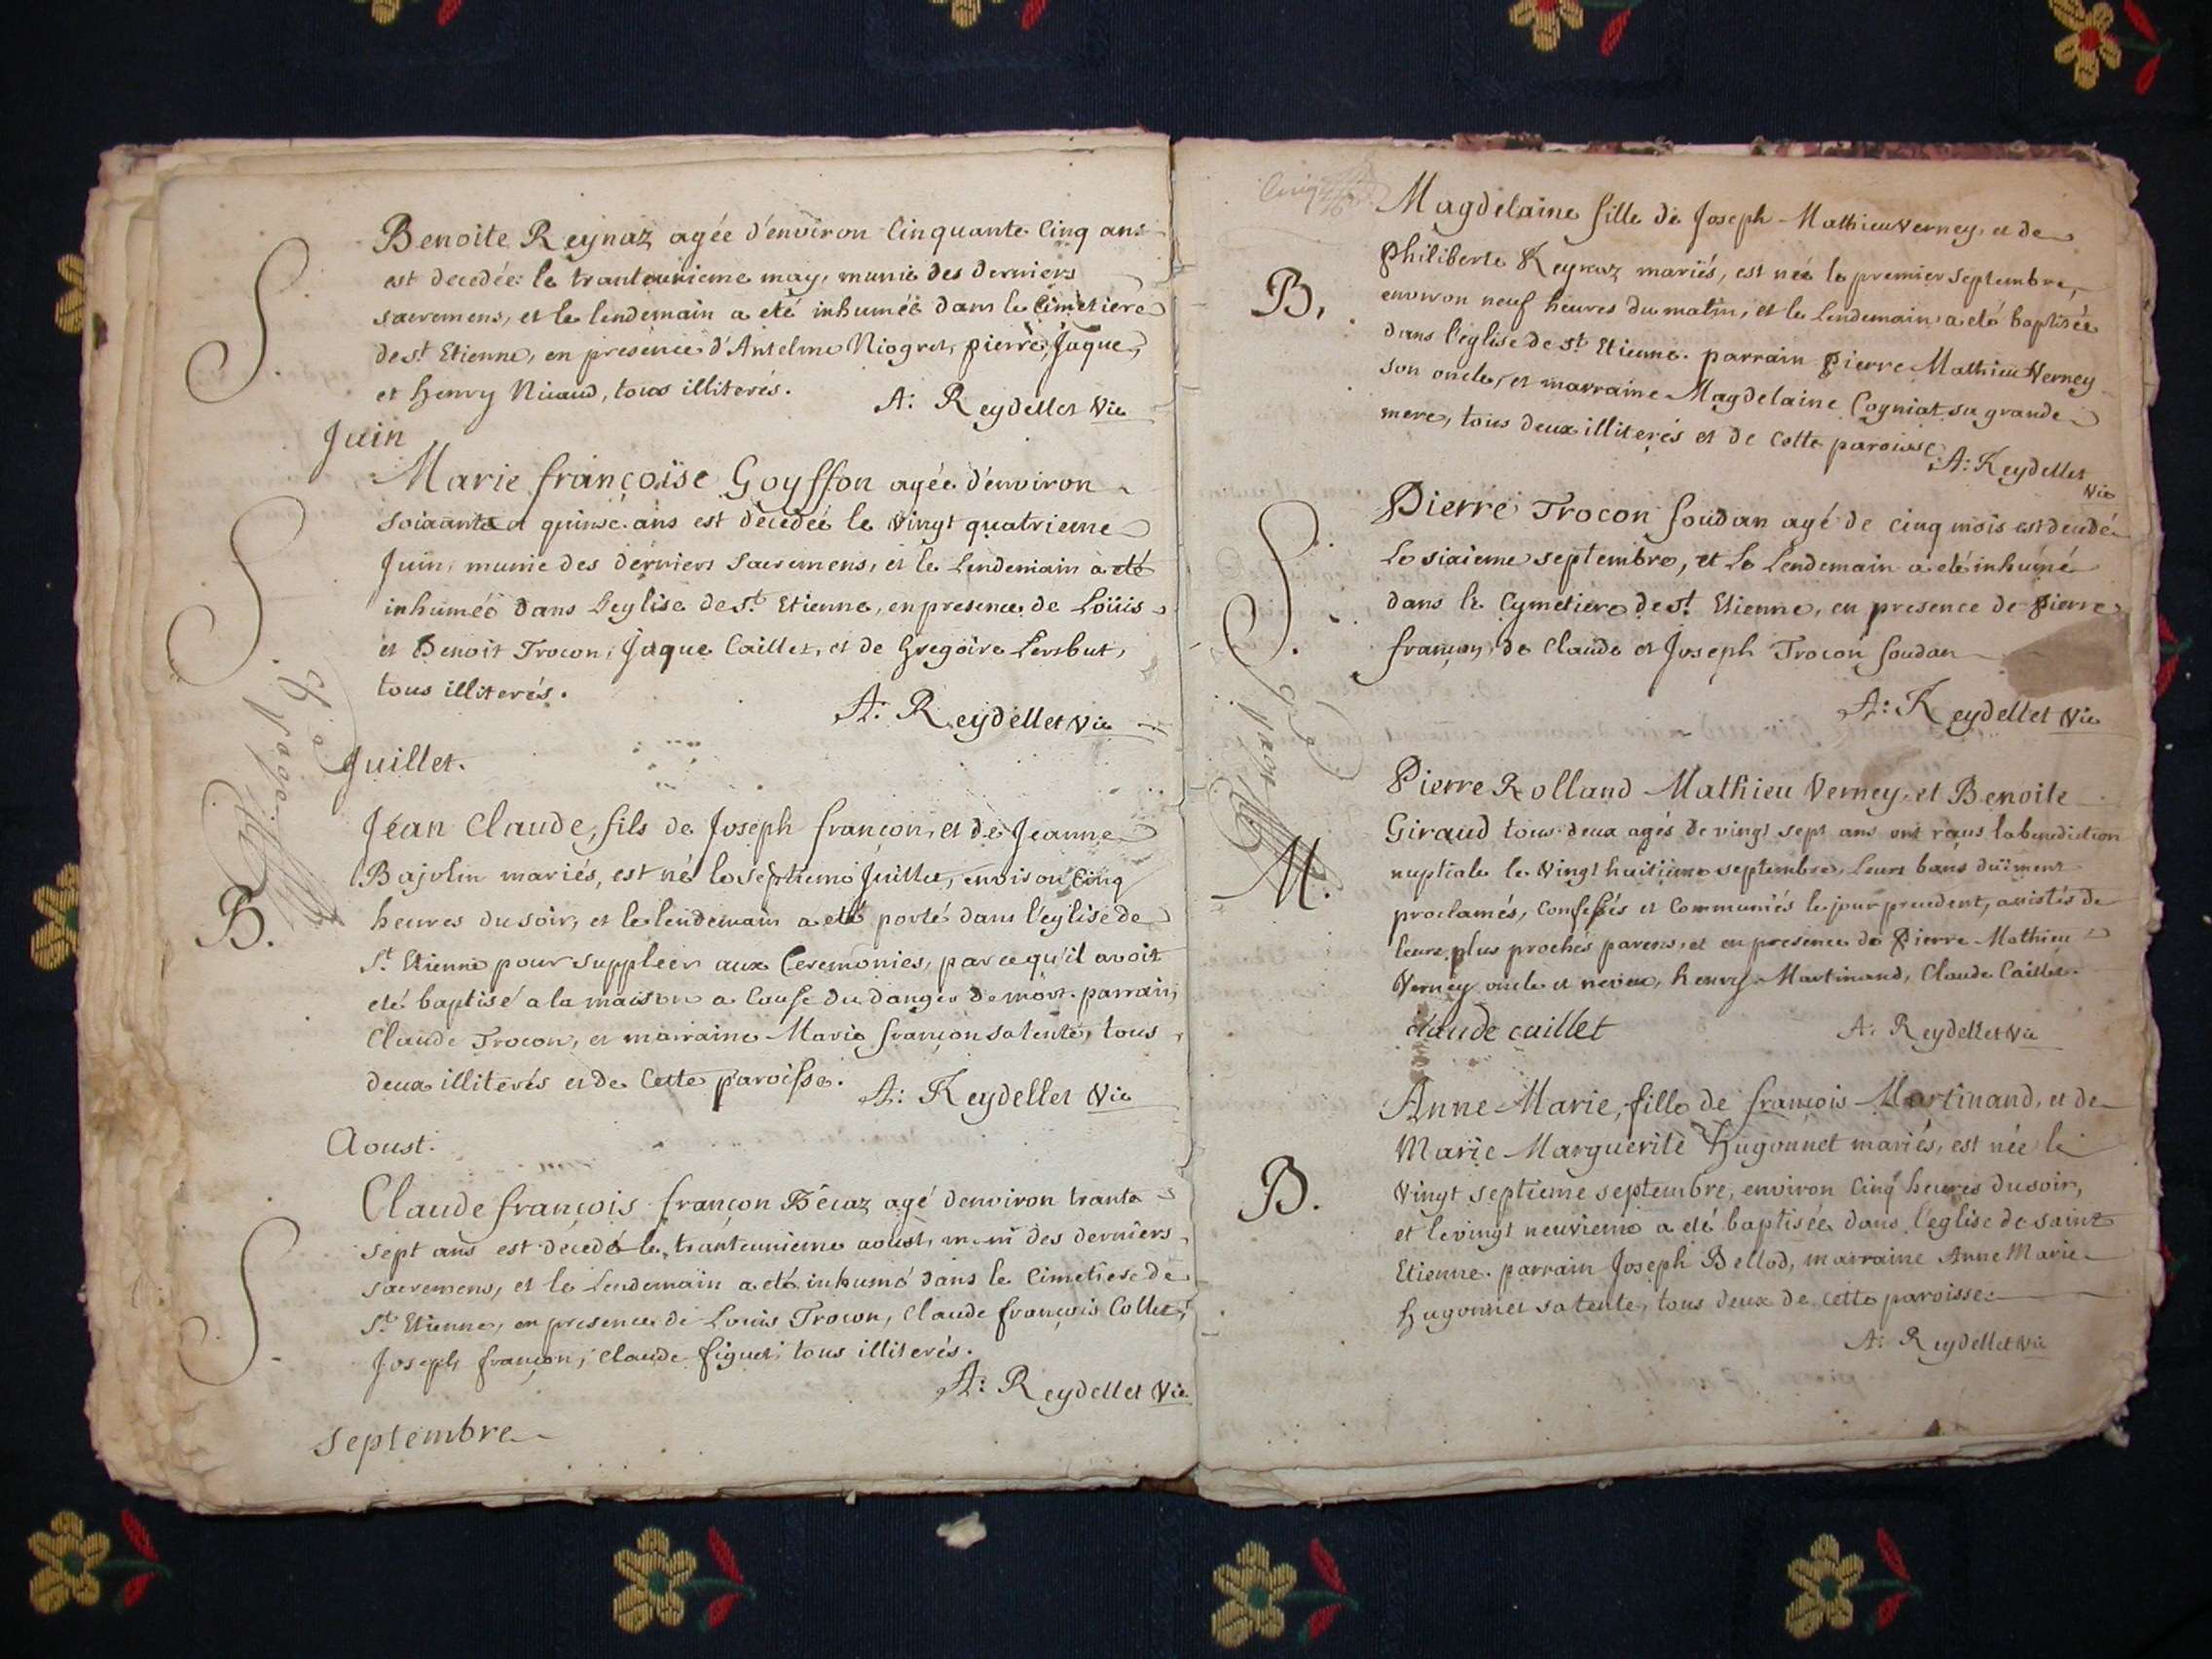 S.
Benoite Reynaz agée d'environ Cinquante Cinq ans
est decedée le tranteunieme may, munie des derniers
sacremens, et le lendemain a eté inhumée dans le Cimetiere
de st Etienne, en presence d'Antelme Niogret, pierre, Jaque,
et henry Nicaud, tous illiterés.
A: Reydellet Vic
Juin
S.
Marie françoise Goyffon agée d'environ
soixante et quinse ans est decedée le vingt quatrieme
Juin, munie des derniers Sacremens, et le Lendemain a eté
inhumée dans L'eglise de st Etienne, en presence de Loüis
et Benoit Trocon, Jaque Caillet, et de Gregoire
tous illiterés.
A: Reydellet Vic
page
Juillet.
B.
Jean Claude, fils de Joseph françon, et de Jeanne
Bajolin mariés, est né le septieme Juillet, environ Cinq
heures du soir, et le lendemain a eté porté dans l'eglise de
St Etienne pour suppleer aux Ceremonies, parcequ'il avoit
eté baptisé a la maison a Cause du danger de mort. parrain,
Claude Trocon, et marraine Marie françon sa tente, tous
deux illiterés et de Cette paroisse.
A: Reydellet Vic
Aoust.
S.
Claude françois françon Bécaz agé d'environ trante
sept ans est decedé le tranteunieme aoust, muni des derniers
sacremens, et le Lendemain a eté inhumé dans le Cimetiere de
St Etienne, en presence de Louis Trocon, Claude françois Collet,
Joseph françon, Claude figuet, tous illiterés.
A: Reydellet Vic
Septembre
B.
Magdelaine fille de Joseph Mathieu Verney, et de
Philiberte Reynaz mariés, est née le premier septembre,
environ neuf heures du matin, et le Lendemain a eté baptisée
dans l'eglise de st Etienne. parrain Pierre Mathieu Verney
son oncle, et marraine Magdelaine Cogniat sa grande
mere, tous deux illiterés et de cette paroisse.
A: Reydellet
Vic
S.
Pierre Trocon Soudan agé de cinq mois est decedé
Le sixieme septembre, et Le Lendemain a eté inhumé
dans le Cymetiere de st Etienne, en presence de pierre
françon, de Claude et Joseph Trocon Soudan
A: Reydellet Vic
page
M.
Pierre Rolland Mathieu Verney, et Benoite
Giraud tous deux agés de vingt sept ans ont reçus la benediction
nuptiale le vingt huitieme septembre, Leurs bans düment
proclamés, Confessés et Communiés le jour precedent, assistés de
leurs plus proches parens, et en presence de Pierre Mathieu
Verney oncle et neveu, henry Martinand, Claude Caillet.
claude caillet
A: Reydellet Vic
B.
Anne Marie, fille de françois Martinand, et de
Marie Marguerite Hugonnet mariés, est née le
vingt septieme septembre, environ Cinq heures du soir,
et le vingt neuvieme a eté baptisée dans l'eglise de saint
Etienne. parrain Joseph Bellod, marraine Anne Marie
Hugonnet sa tente, tous deux de cette paroisse.
A: Reydellet Vic